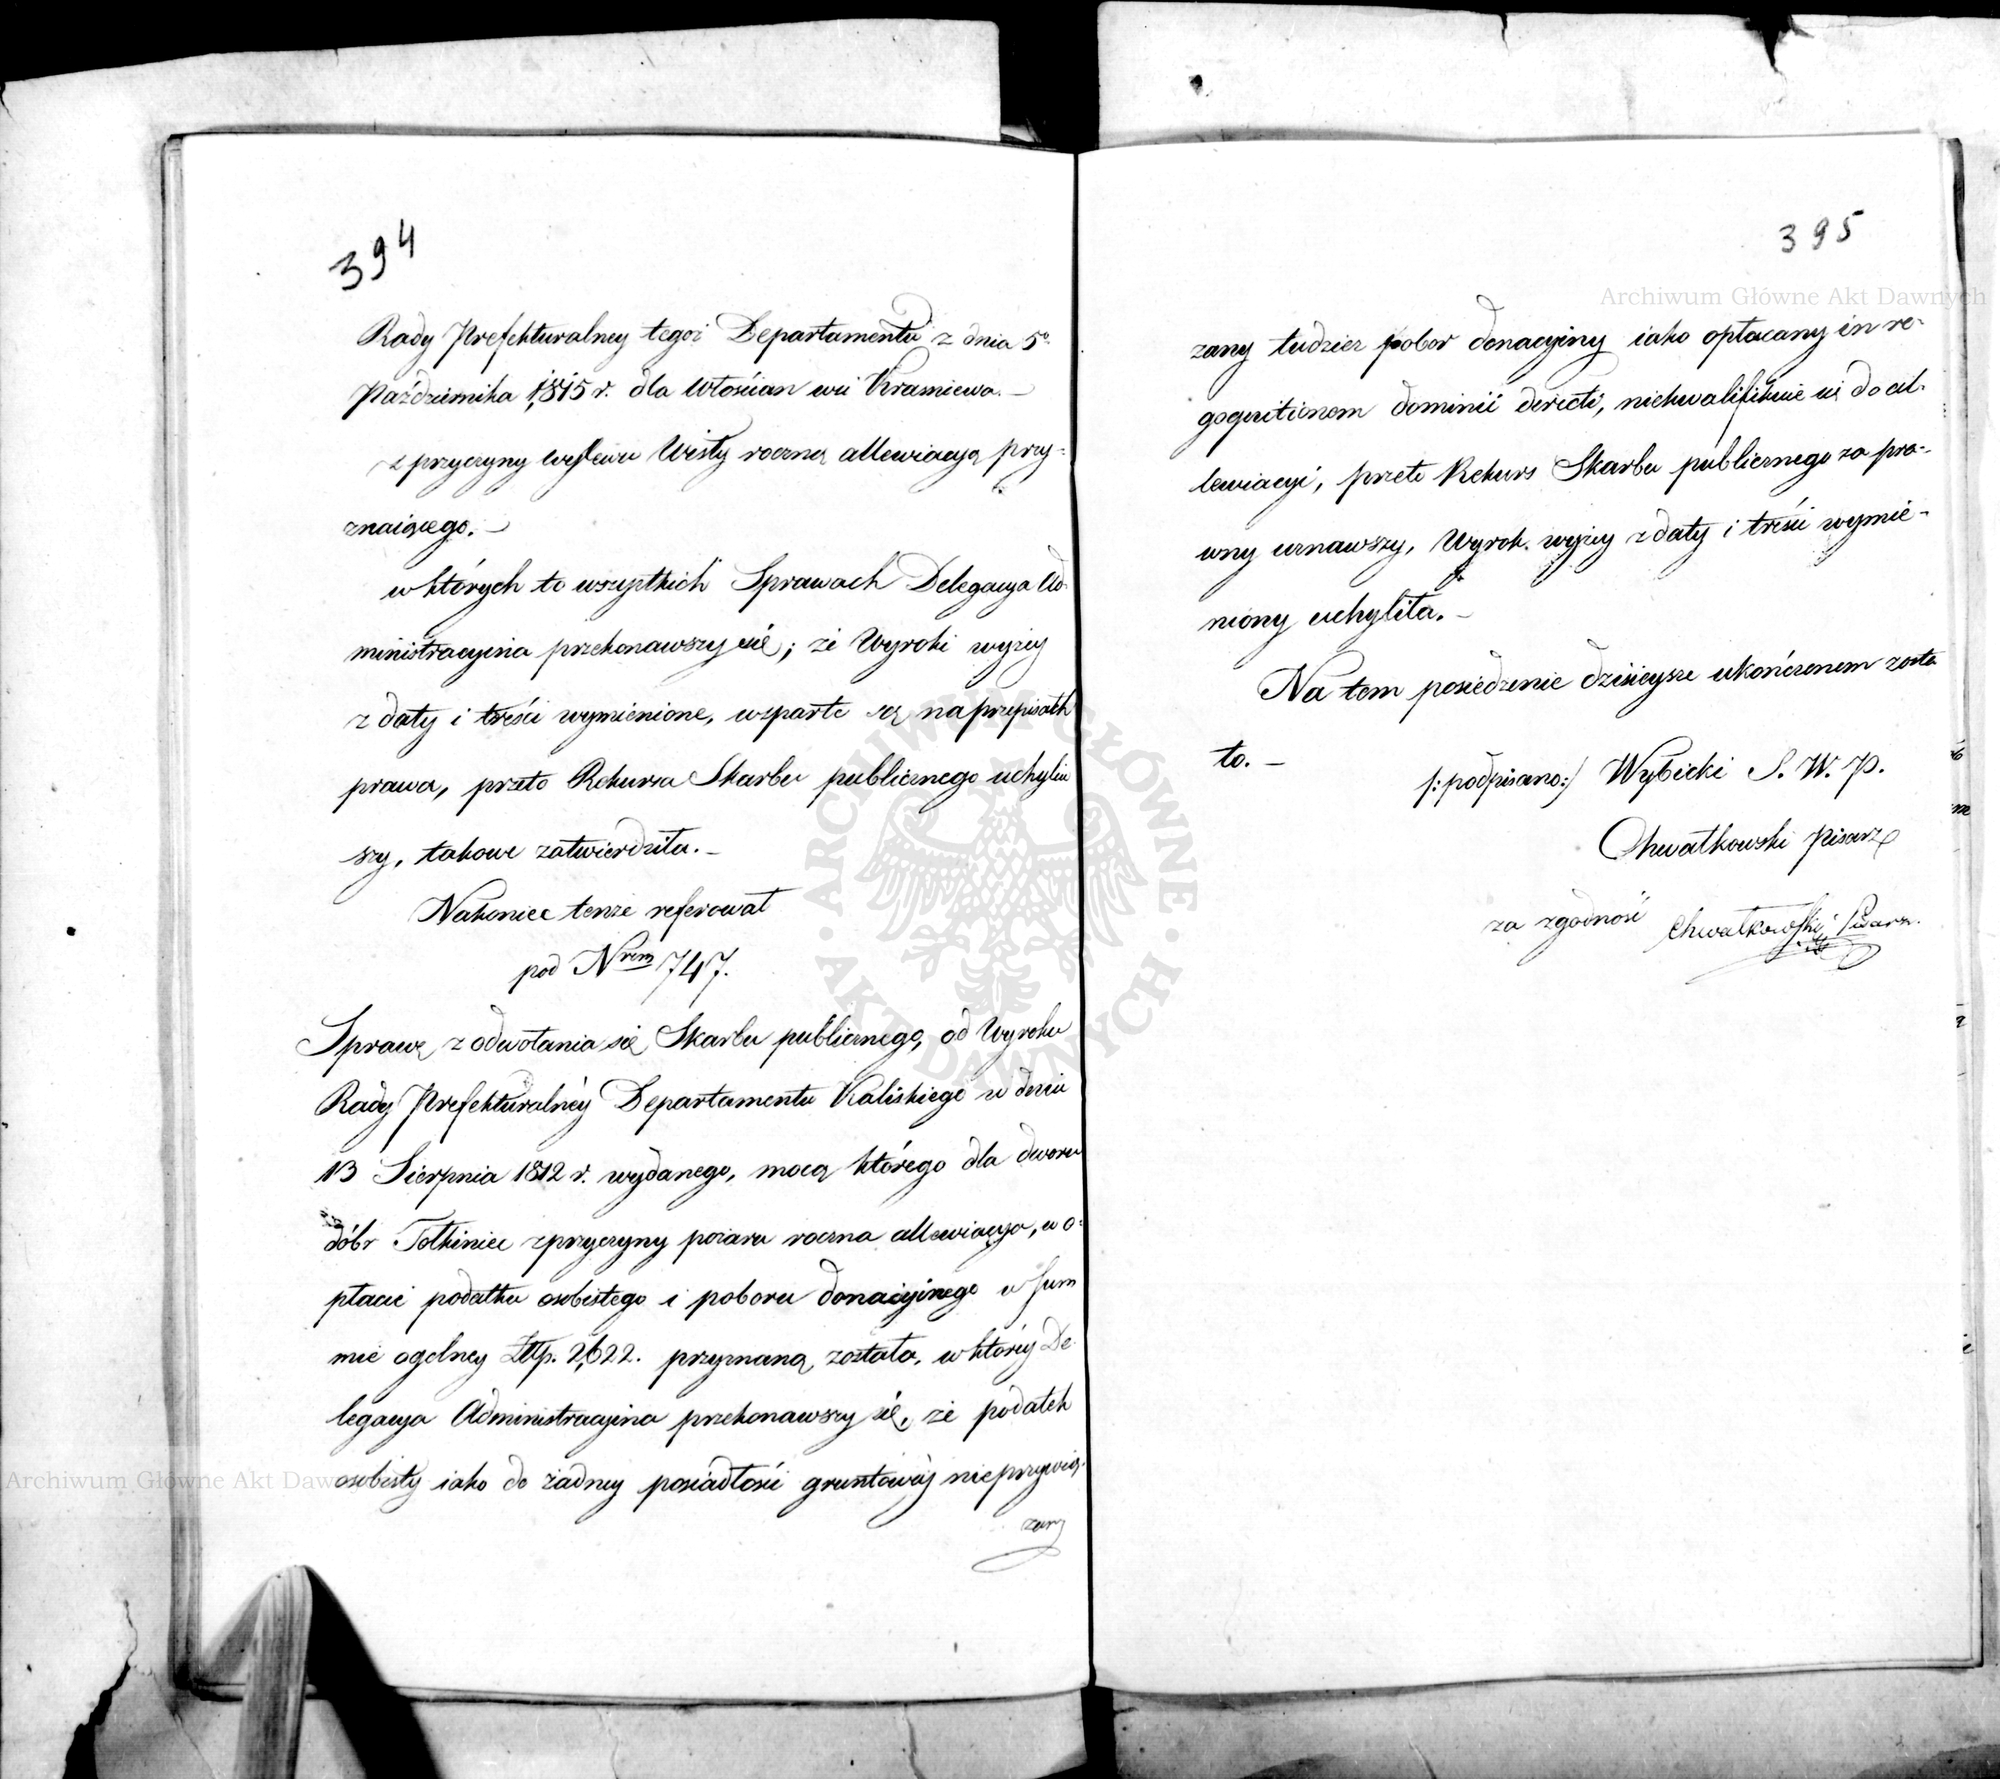 394
Rady Prefekturalney tegoż Departamentu z dnia 5º
Października 1,815 r. dla Włościan wsi Kramiewa. —
z przyczyny wylewu Wisły roczną allewiacyą przy-
znaiącego. —
w których to wszystkich Sprawach Delegacya Ad-
ministracyina przekonawszy się; że Wyroki wyżey
z daty i treści wymienione, wsparte są na przepisach
prawa, przeto Rekursa Skarbu publicznego uchyliw
szy, takowe zatwierdziła. —
Nakoniec tenże referował
pod Nrem 747.
Sprawę z odwołania się Skarbu publicznego, od Wyroku
Rady Prefekturalnéy Departamentu Kaliskiego w dniu
13 Sierpnia 1812 r. wydanego, mocą którego dla dworu
dóbr z przyczyny pożaru roczna allewiacya, w o-
płacie podatku osobistego i poboru donacyinego w Sum
mie ogolney Złłp. 2,622. przyznaną została, w któréy De-
legacya Administracyina przekonawszy się, że podatek
osobisty iako do żadney posiadłości gruntowéy nieprzywią-
zany
395
zany tudzież pobor donacyiny iako opłacany in re-
gognitionem dominii derecti, niekwalifikuie się do al-
lewiacyi, przeto Rekurs Skarbu publicznego za pra-
wny uznawszy, Wyrok wyżey z daty i treści wymie-
niony uchyliła. —
Na tem posiedzenie dzisieysze ukończonem zosta
ło. —
/:podpisano:/ Wybicki S. W. P.
Chwatkowski Pisarz
za zgodność Chwatkowski Pisarz.
Archiwum Główne Akt Dawnych
Archiwum Główne Akt Dawnych
ARCHIWUM GŁÓWNE AKT DAWNYCH